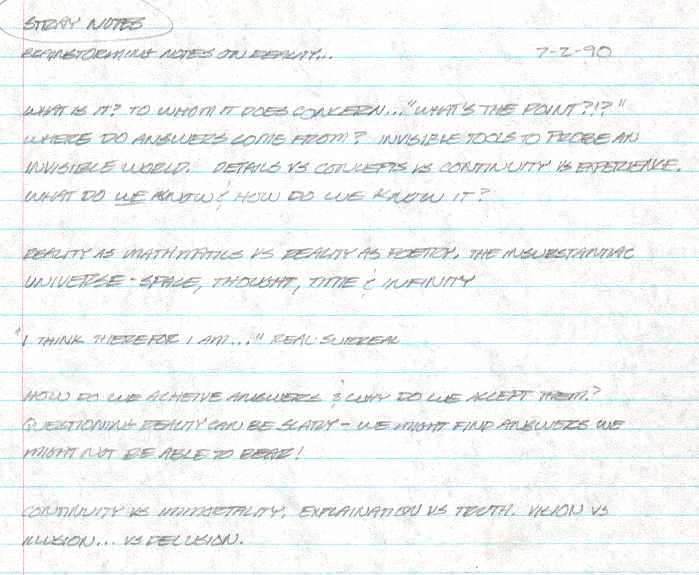 STRAY NOTES
BRAINSTORMING NOTES ON REALITY... 7-2-90
WHAT IS IT? TO WHOM IT DOES CONCERN... "WHAT'S THE POINT?!?"
WHERE DO ANSWERS COME FROM? INVISIBLE TOOLS TO PROBE AN
INVISIBLE WORLD. DETAILS VS CONCEPTS VS CONTINUITY VS EXPERIENCE.
WHAT DO WE KNOW & HOW DO WE KNOW IT?
REALITY AS MATHMATICS VS REALITY AS POETRY. THE INSUBSTANTIAL
UNIVERSE - SPACE, THOUGHT, TIME & INFINITY
"I THINK THEREFOR I AM..." REAL-SURREAL
HOW DO WE ACHEIVE ANSWERS & WHY DO WE ACCEPT THEM?
QUESTIONING REALITY CAN BE SCARY - WE MIGHT FIND ANSWERS WE
MIGHT NOT BE ABLE TO BEAR!
CONTINUITY VS IMMORTALITY. EXPLAINATION VS TRUTH. VISION VS
ILLUSION... VS DELUSION.